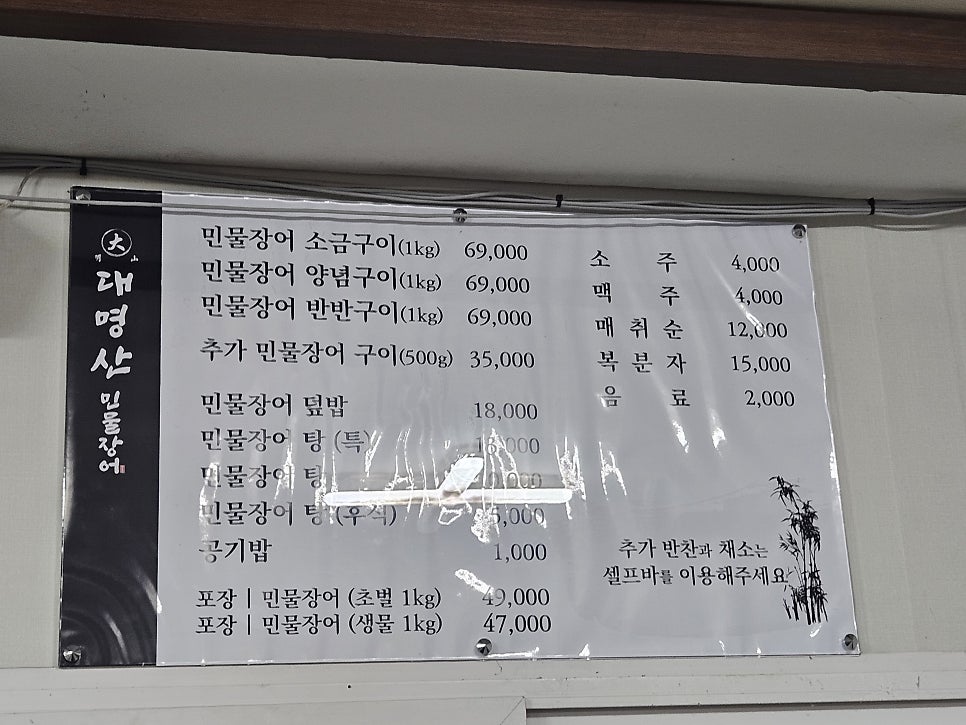 大
대명산
민물장어
민물장어 소금구이(1kg) 69,000
민물장어 양념구이(1kg) 69,000
민물장어 반반구이(1kg) 69,000
추가 민물장어 구이(500g) 35,000
민물장어 덮밥 18,000
민물장어 탕 (특)
민물장어 탕
민물장어 탕 (후식) 5,000
공기밥 1,000
포장 | 민물장어 (초벌 1kg) 49,000
포장 | 민물장어 (생물 1kg) 47,000
소 주 4,000
맥 주 4,000
매 취 순 12,000
복 분 자 15,000
음 료 2,000
추가 반찬과 채소는
셀프바를 이용해주세요